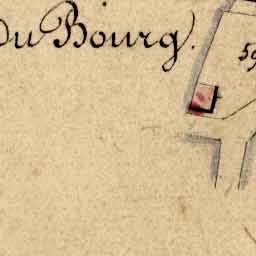 Du Bourg.
59